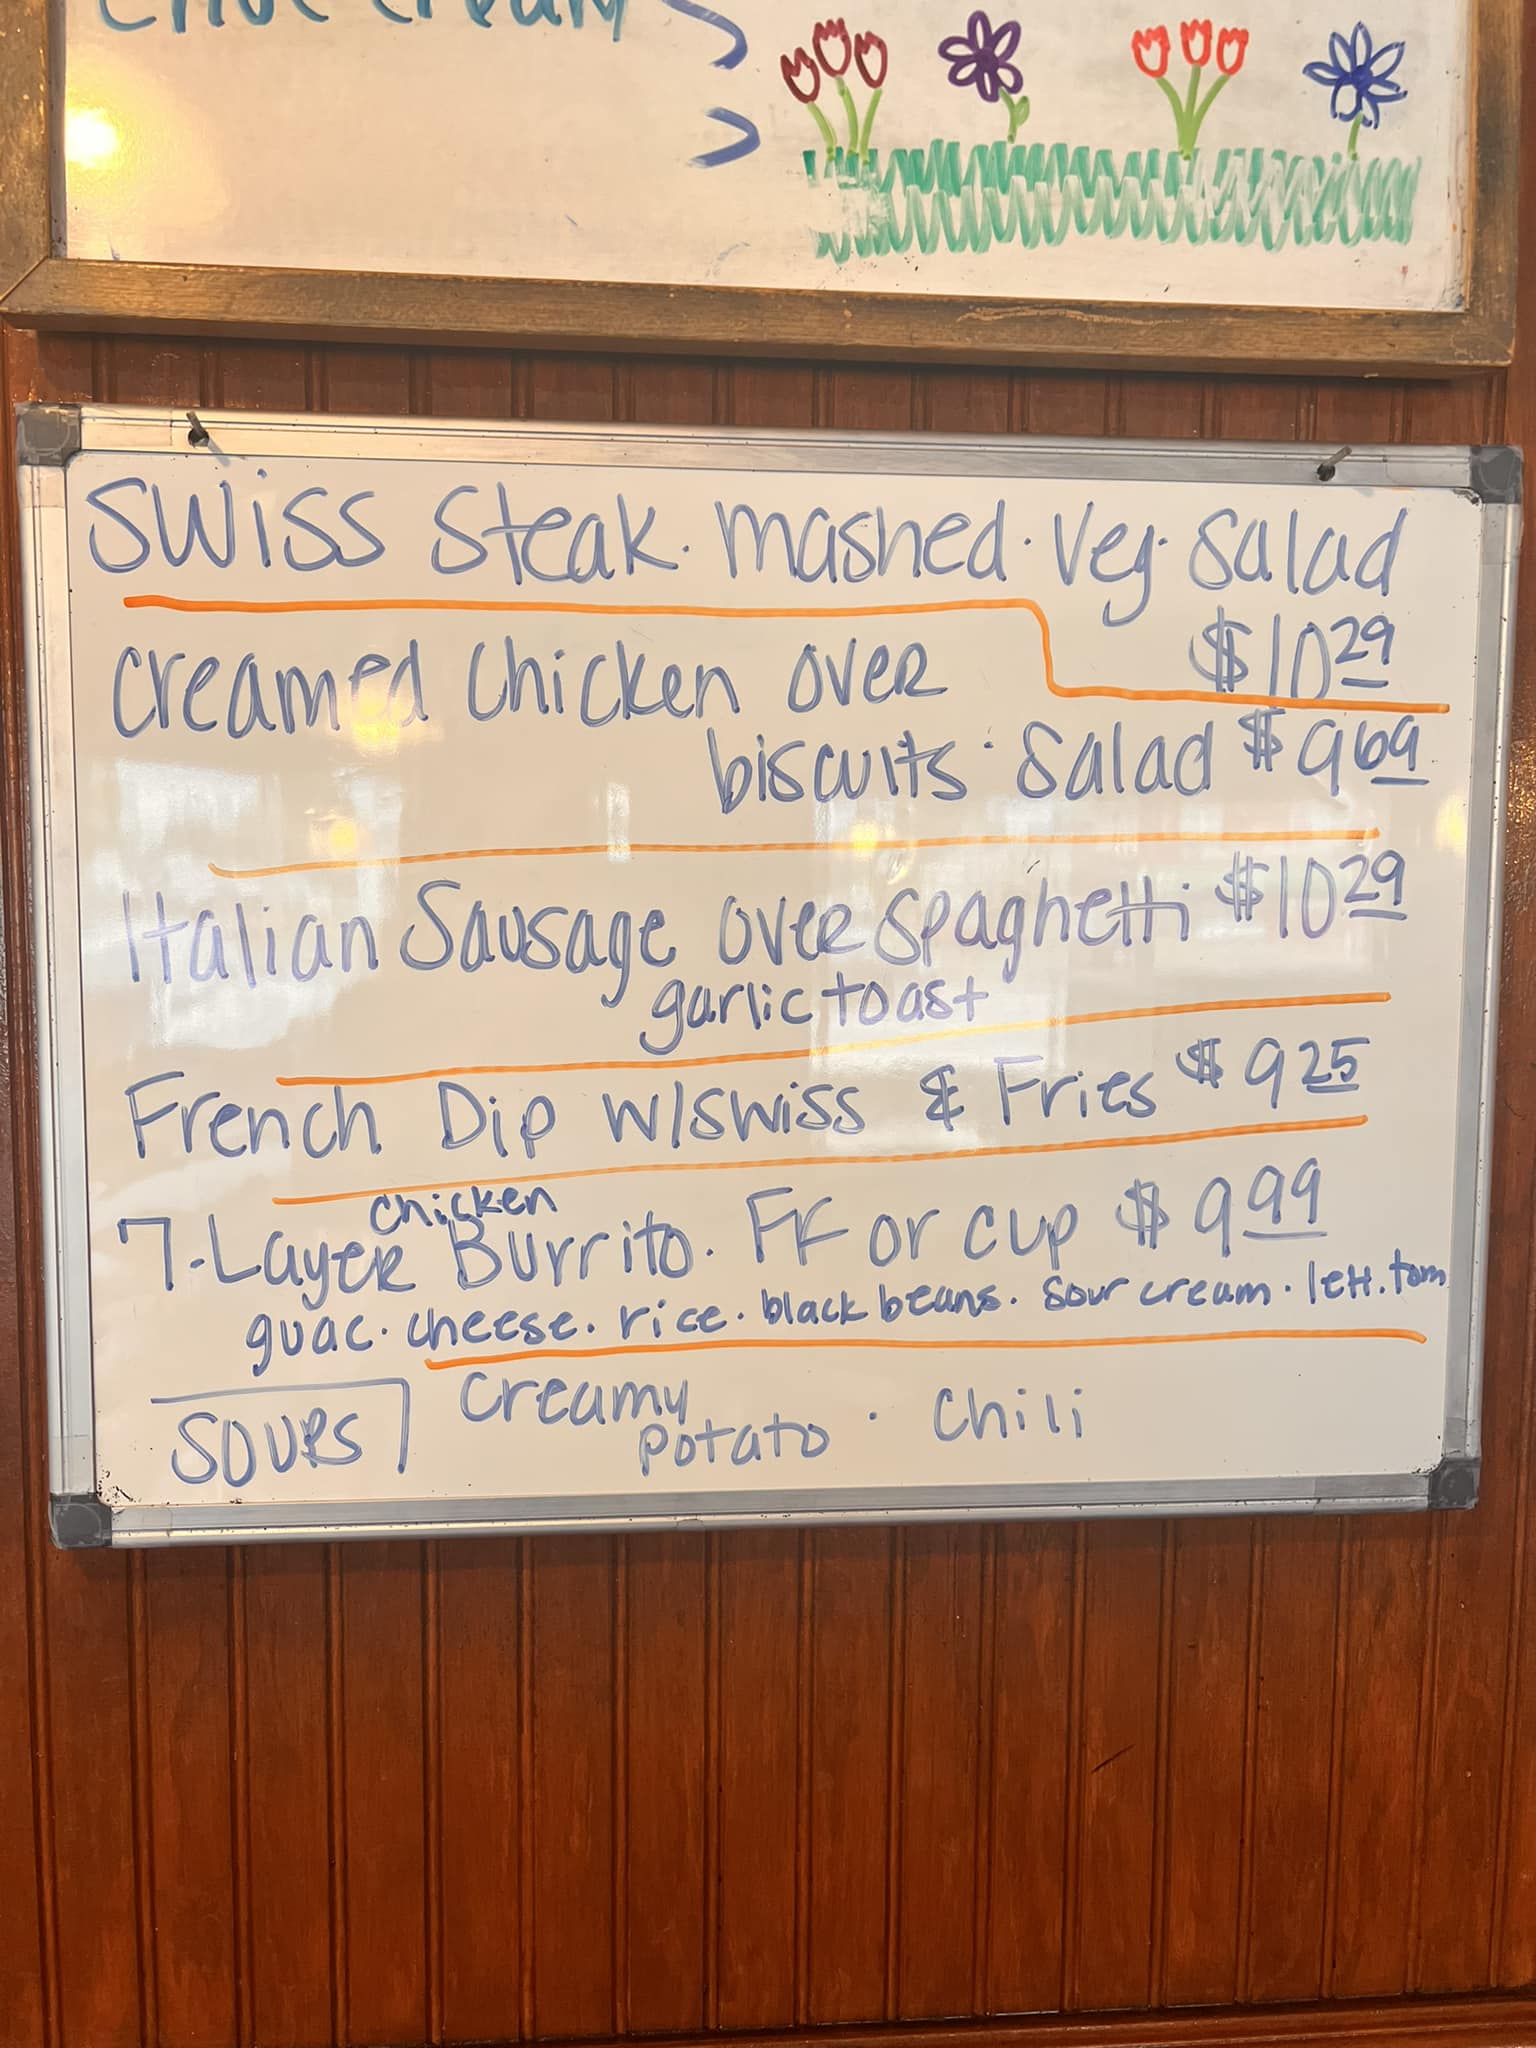 cream
Swiss Steak · mashed · Veg · Salad
$10 29
Creamed Chicken over
biscuits · Salad $9 69
Italian Sausage over Spaghetti $10 29
garlic toast
French Dip w/swiss & Fries $9 25
chicken
7-Layer Burrito · FF or cup $9 99
guac · cheese · rice · black beans · sour cream · lett. tom
SOUPS
Creamy
potato · Chili